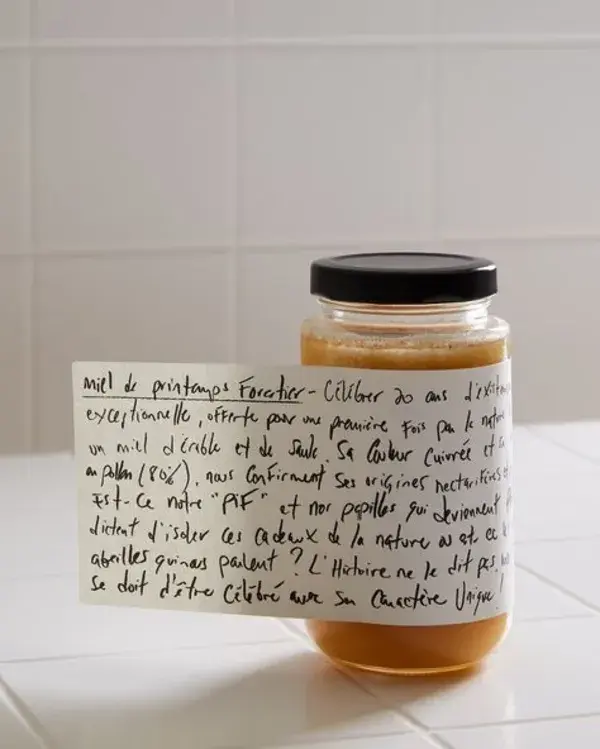 Miel de printemps Forestier - Célébrer 20 ans d'exist
exceptionnelle, offerte pour une première fois par la nature
un miel d'érable et de Saule. Sa Couleur Cuivrée et sa
en pollen (80%), nous Confirment Ses origines nectarifères et
Est-ce notre "PIF" et nos papilles qui deviennent
dictent d'isoler ces cadeaux de la nature ou est ce
abeilles qui nous parlent ? L'Histoire ne le dit pas,
se doit d'être Célébré avec Son Caractère Unique !